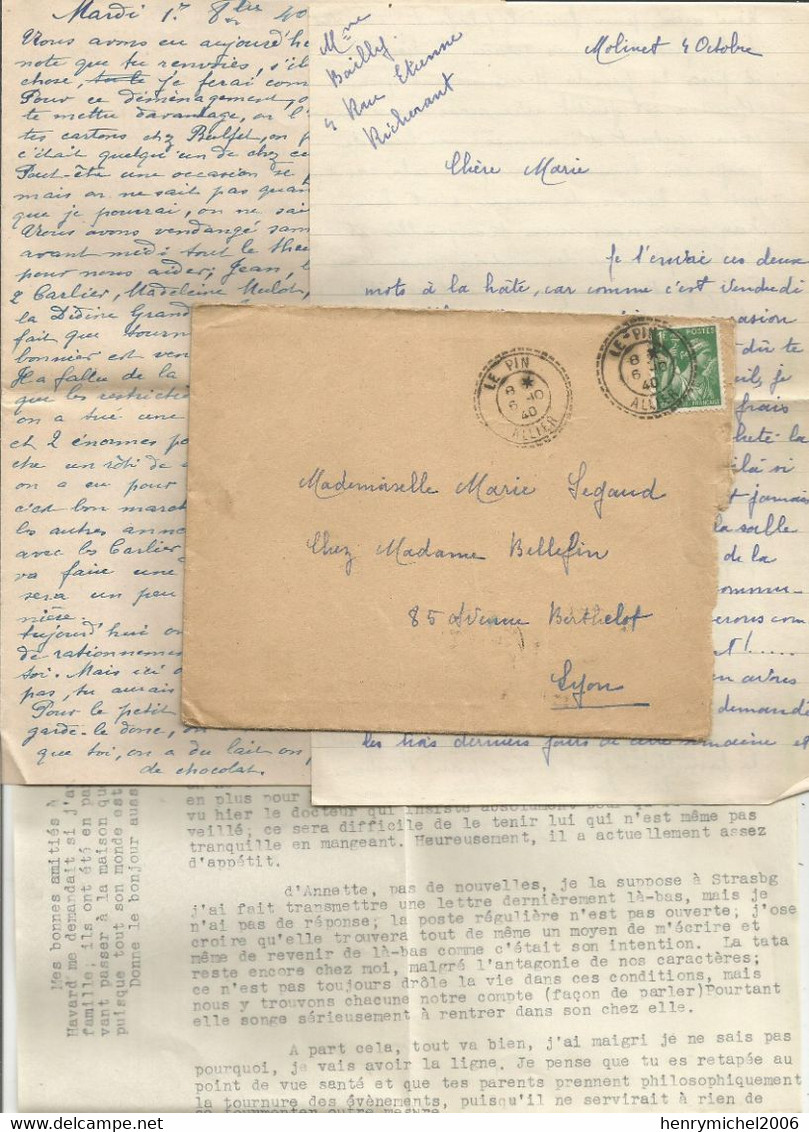 Mardi 1er 8bre 40
Nous avons eu aujourd'h
note que tu renverras, s'il
chose, je ferai com
Pour ce déménagement, o
te mettre davantage, on l'
tes cartons chez Belfet, on p
c'était quelqu'un de chez ce
Peut-être une occasion se p
mais on ne sait pas quan
que je pourrai, on ne sai
Nous avons vendangé sam
avant midi tout le
pour nous aider; Jean, l
2 Carlier, Madeleine Mulot,
la Didine Grand
fait que tourn
bonnier est ven
Il a fallu de la
que les restricti
on a tué une
et 2 énormes po
che un rôti de
on a eu pour
c'est bon march
les autres anné
avec les Carlier
va faire une
sera un peu
nière.
Aujourd'hui on
de rationneme
toi. Mais ici o
pas, tu aurais
Pour le petit
garde-le donc, on
que toi, on a du lait on
de chocolat.
Mme
Bailly
4 Rue Etienne
Richerant
Molinet 4 Octobre
Chère Marie
Je t'envoie ces deux
mots à la hâte, car comme c'est vendredi
asion
dû te
eils, je
frais
heté la
ilà si
t jamais
la salle
de la
ommu-
erons com
t!.....
en arbres
demandé
les trois derniers jours de cette semaine et
LE PIN
8 *
6 -10
40
ALLIER
LE PIN
8 *
6 -10
40
ALLIER
1F
POSTES
Mademoiselle Marie Segaud
Chez Madame Bellefin
85 Avenue Berthelot
Lyon
en plus pour
vu hier le docteur qui insiste absolument pour qu
veillé; ce sera difficile de le tenir lui qui n'est même pas
tranquille en mangeant. Heureusement, il a actuellement assez
d'appétit.
d'Annette, pas de nouvelles, je la suppose à Strasbg
j'ai fait transmettre une lettre dernièrement là-bas, mais je
n'ai pas de réponse; la poste régulière n'est pas ouverte; j'ose
croire qu'elle trouvera tout de même un moyen de m'écrire et
même de revenir de là-bas comme c'était son intention. La tata
reste encore chez moi, malgré l'antagonie de nos caractères;
ce n'est pas toujours drôle la vie dans ces conditions, mais
nous y trouvons chacune notre compte (façon de parler)Pourtant
elle songe sérieusement à rentrer dans son chez elle.
A part cela, tout va bien, j'ai maigri je ne sais pas
pourquoi, je vais avoir la ligne. Je pense que tu es retapée au
point de vue santé et que tes parents prennent philosophiquement
la tournure des évènements, puisqu'il ne servirait à rien de
se tourmenter outre mesure.
Mes bonnes amitiés à
Havard me demandait si j'a
famille; ils ont été en pa
vant passer à la maison qu
puisque tout son monde est
Donne le bonjour auss
henrymichel2006